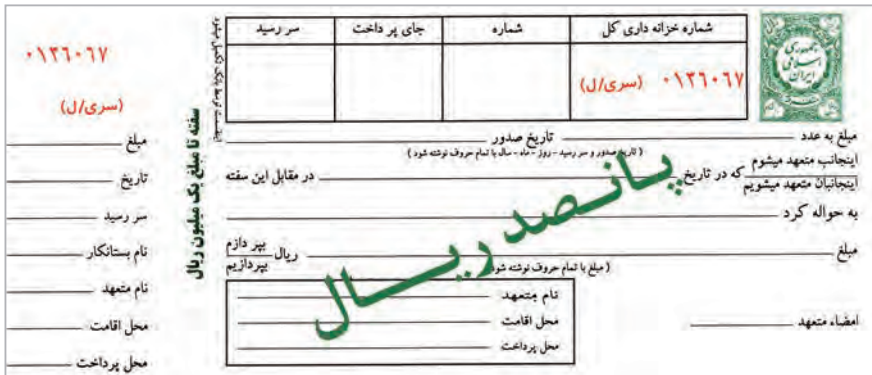 شماره خزانه داری کل
شماره
جای پرداخت
سر رسید
۰۱۳۶۰۶۷ (سری/ل)
جمهوری
اسلامی
ایران
مبلغ به عدد تاریخ صدور
( تاریخ صدور و سر رسید - روز - ماه - سال با تمام حروف نوشته شود )
اینجانب متعهد میشوم
اینجانبان متعهد میشویم
که در تاریخ در مقابل این سفته
به حواله کرد
مبلغ ریال
بپر دازم
بپردازیم
( مبلغ با تمام حروف نوشته شود )
پانصد ریال
نام متعهد
محل اقامت
محل پرداخت
امضاء متعهد
سفته تا مبلغ یک میلیون ریال
۰۱۳۶۰۶۷
(سری/ل)
مبلغ
تاریخ
سر رسید
نام بستانکار
نام متعهد
محل اقامت
محل پرداخت